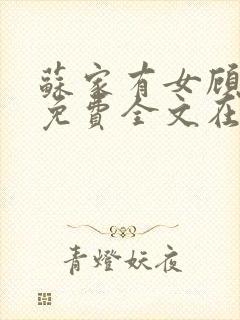 蘇家有女顾
免費全文在
青燈妖夜